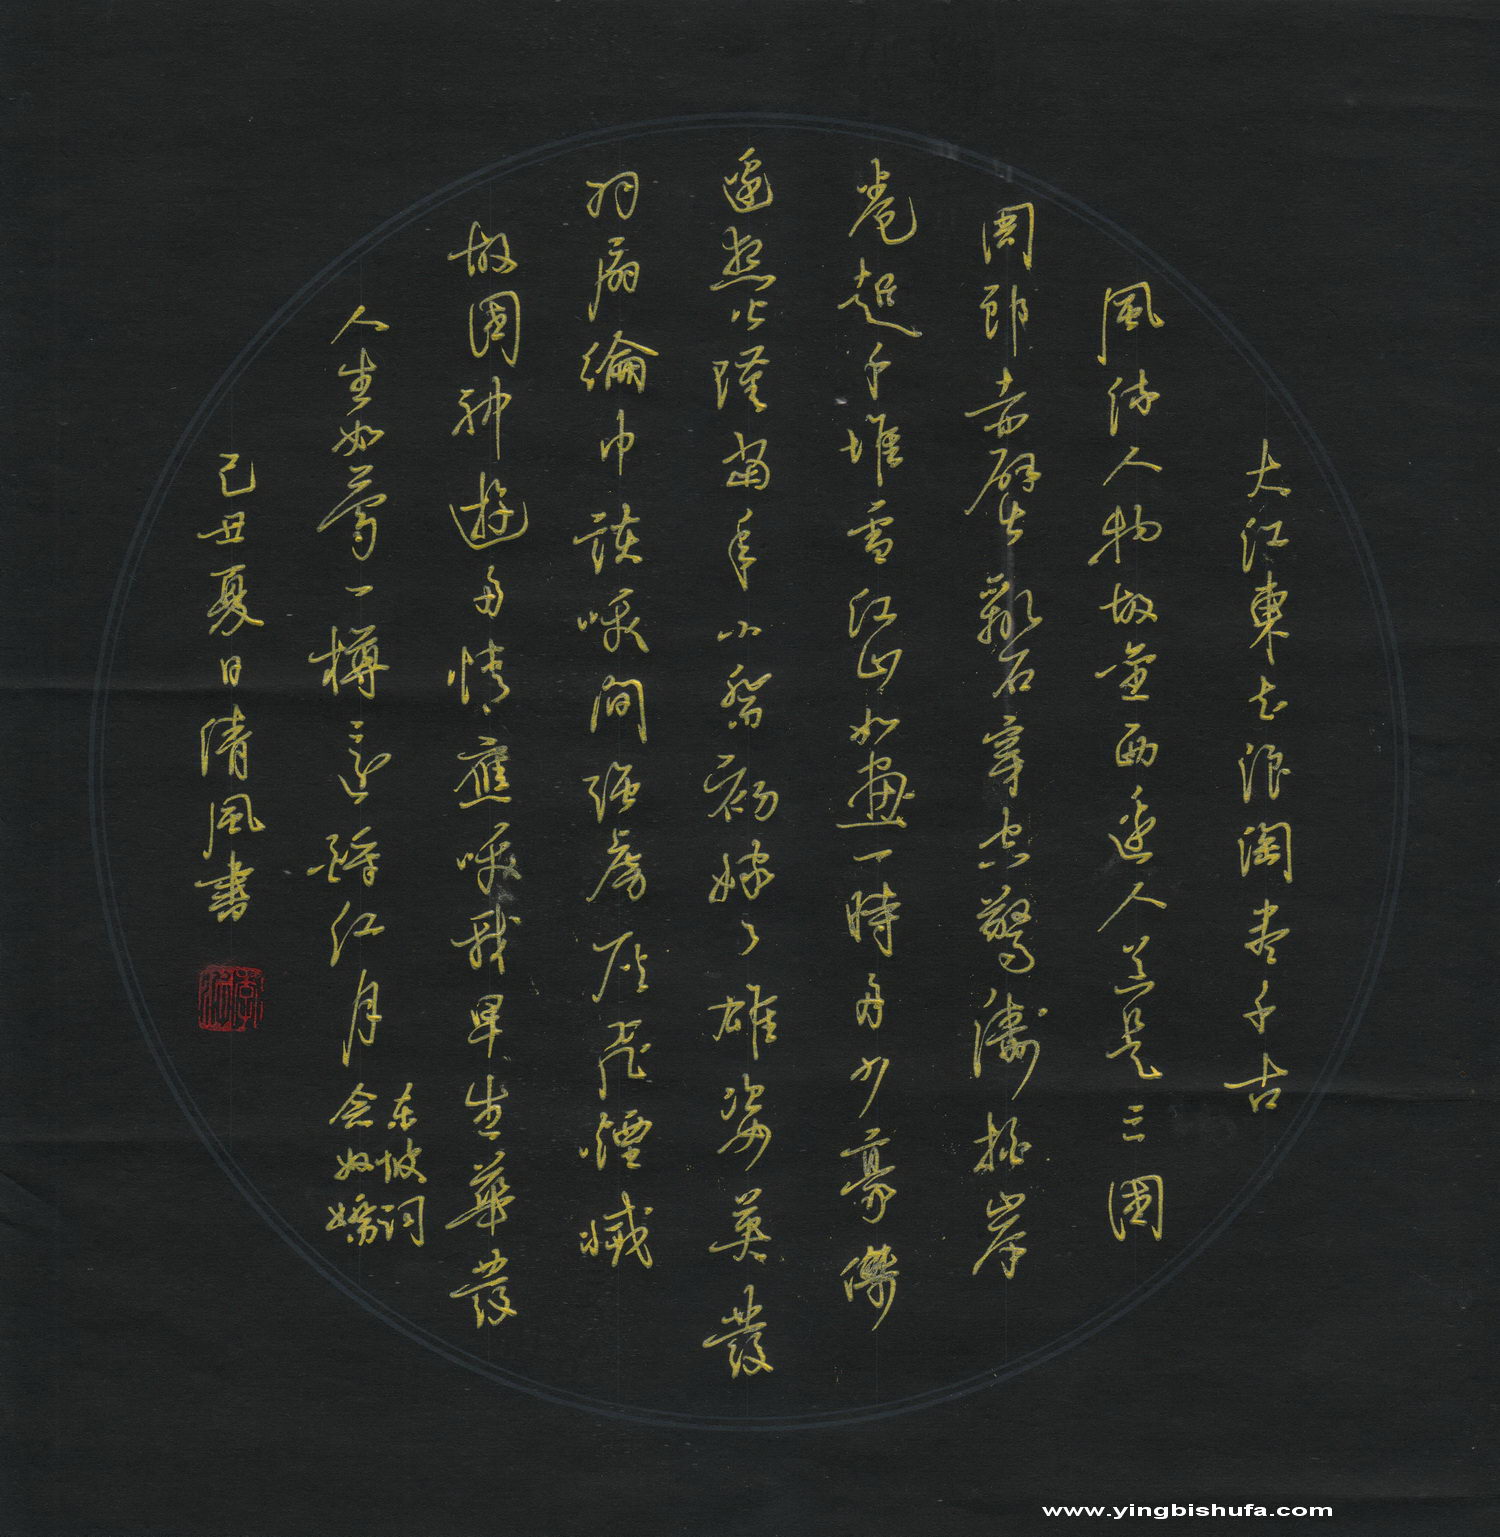 大江東去浪淘盡千古
風流人物故壘西邊人道是三國
周郎赤壁亂石穿空驚濤拍岸
卷起千堆雪江山如畫一時多少豪傑
遙想公瑾當年小喬初嫁了雄姿英發
羽扇綸巾談咲間强虜灰飛煙滅
故國神遊多情應咲我早生華發
人生如夢一樽還酹江月
东坡词
念奴嬌
己丑夏日清風書
www.yingbishufa.com